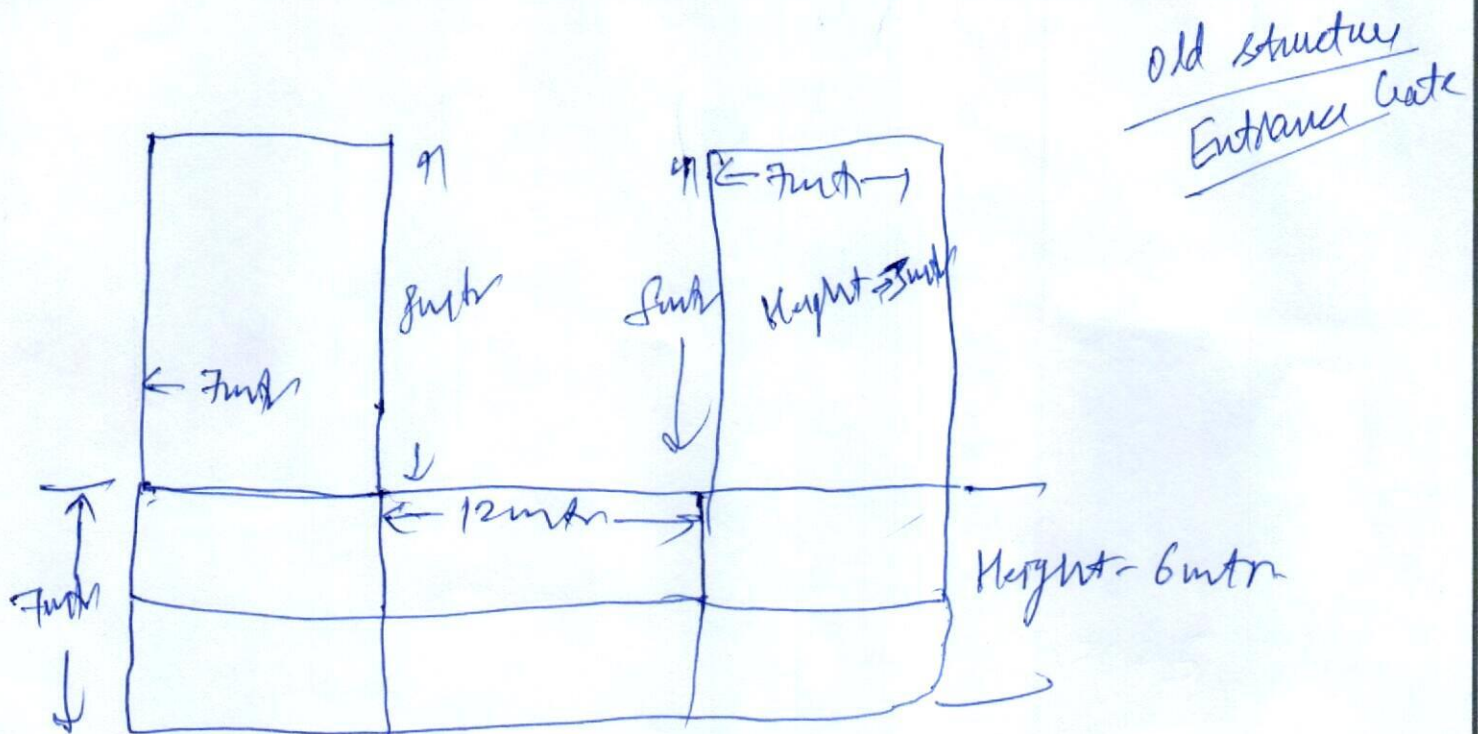 Old structure
Entrance Gate
7mtr
8mtr
8mtr
Height = 3mtr
7mtr
12 mtr
7mtr
Height - 6 mtr